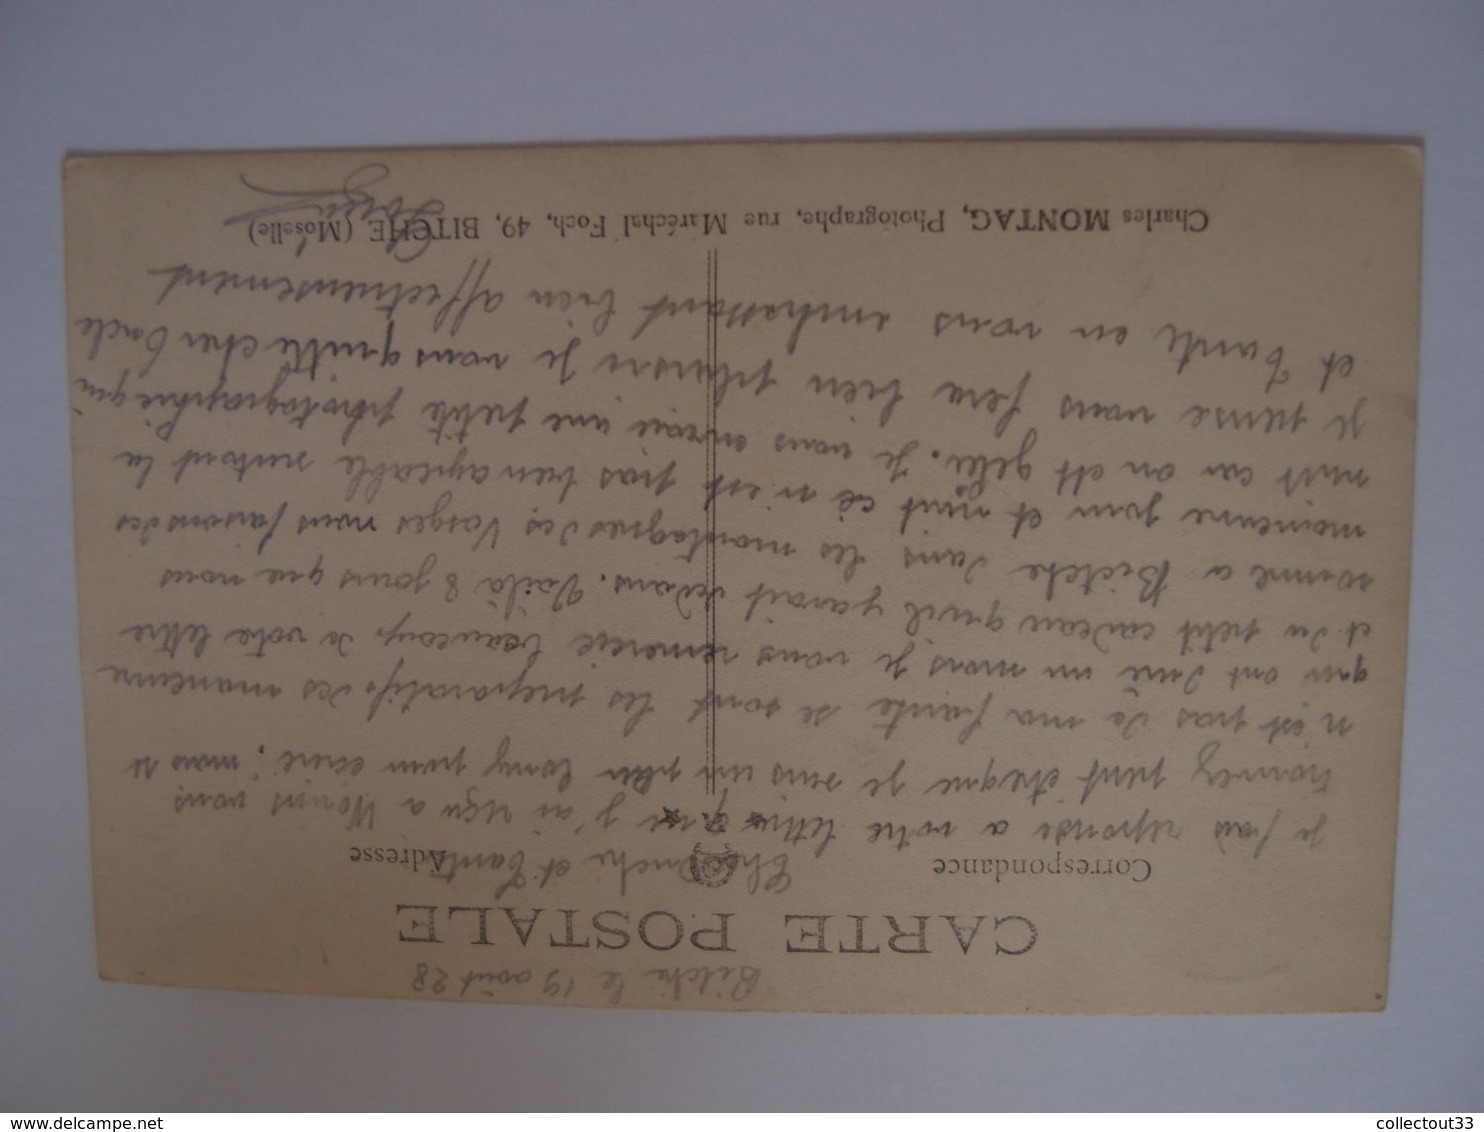 Bitche le 19 août 28
CARTE POSTALE
Correspondance
Adresse
Cher Oncle et Tante
je fais reponse a votre lettre que j'ai reçu a Worms vous
trouvez peut être que je suis un peu long pour ecrire, mais se
n'est pas de ma faute se sont les preparatifs des manœuvre
qui ont duré un mois je vous remercie beaucoup de votre lettre
et du petit cadeau qu'il y avait dedans. Voilà 8 jours que nous
somme a Bietche dans les montagnes des Vosges nous faisons des
manœuvre jour et nuit cè n'est pas bien agréable surtout la
nuit car on est gelé. Je vous envoie une petite photographie qui
je pense vous fera bien plaisir je vous quitte cher Oncle
et Tante en vous embrassant bien affectueusement
Charles MONTAG, Photographe, rue Maréchal Foch, 49, BITCHE (Moselle)
www.delcampe.net
collectout33